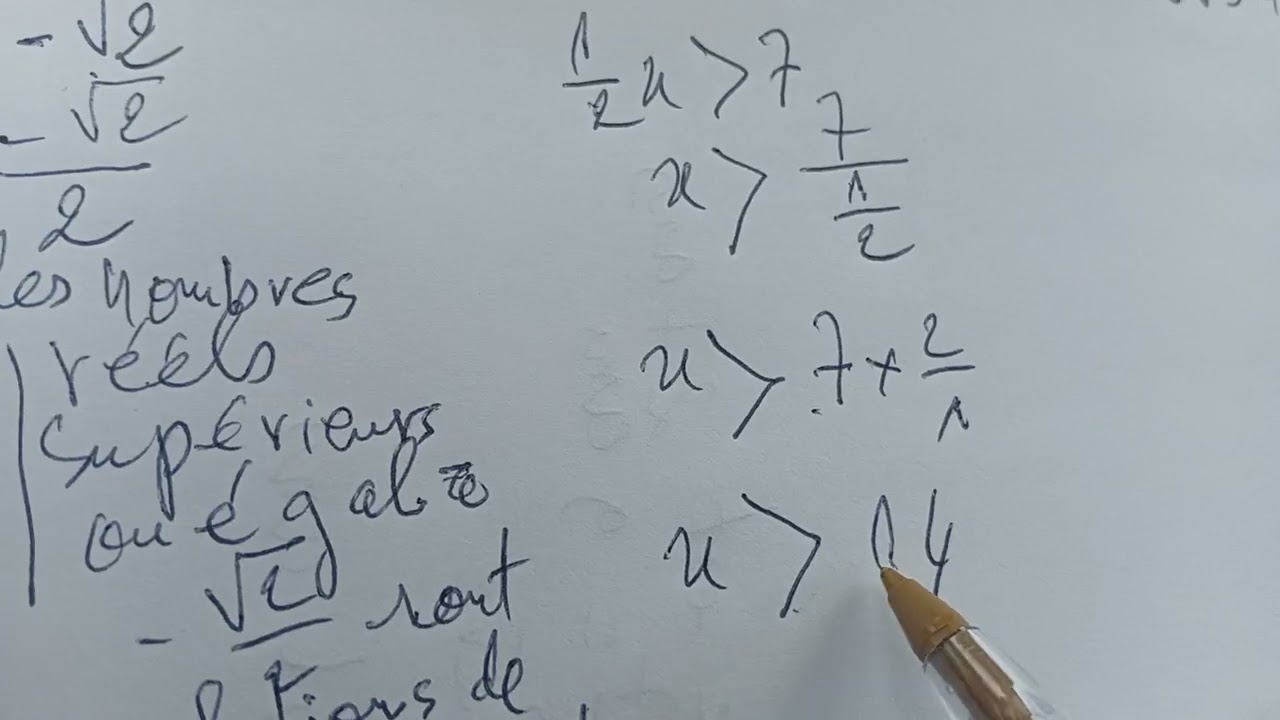 - √2
- √2
2
les nombres
réels
supérieurs
ou égal à
- √2
2 sont
de
1/2 x > 7
x > 7/(1/2)
x > 7 × 2/1
x > 14